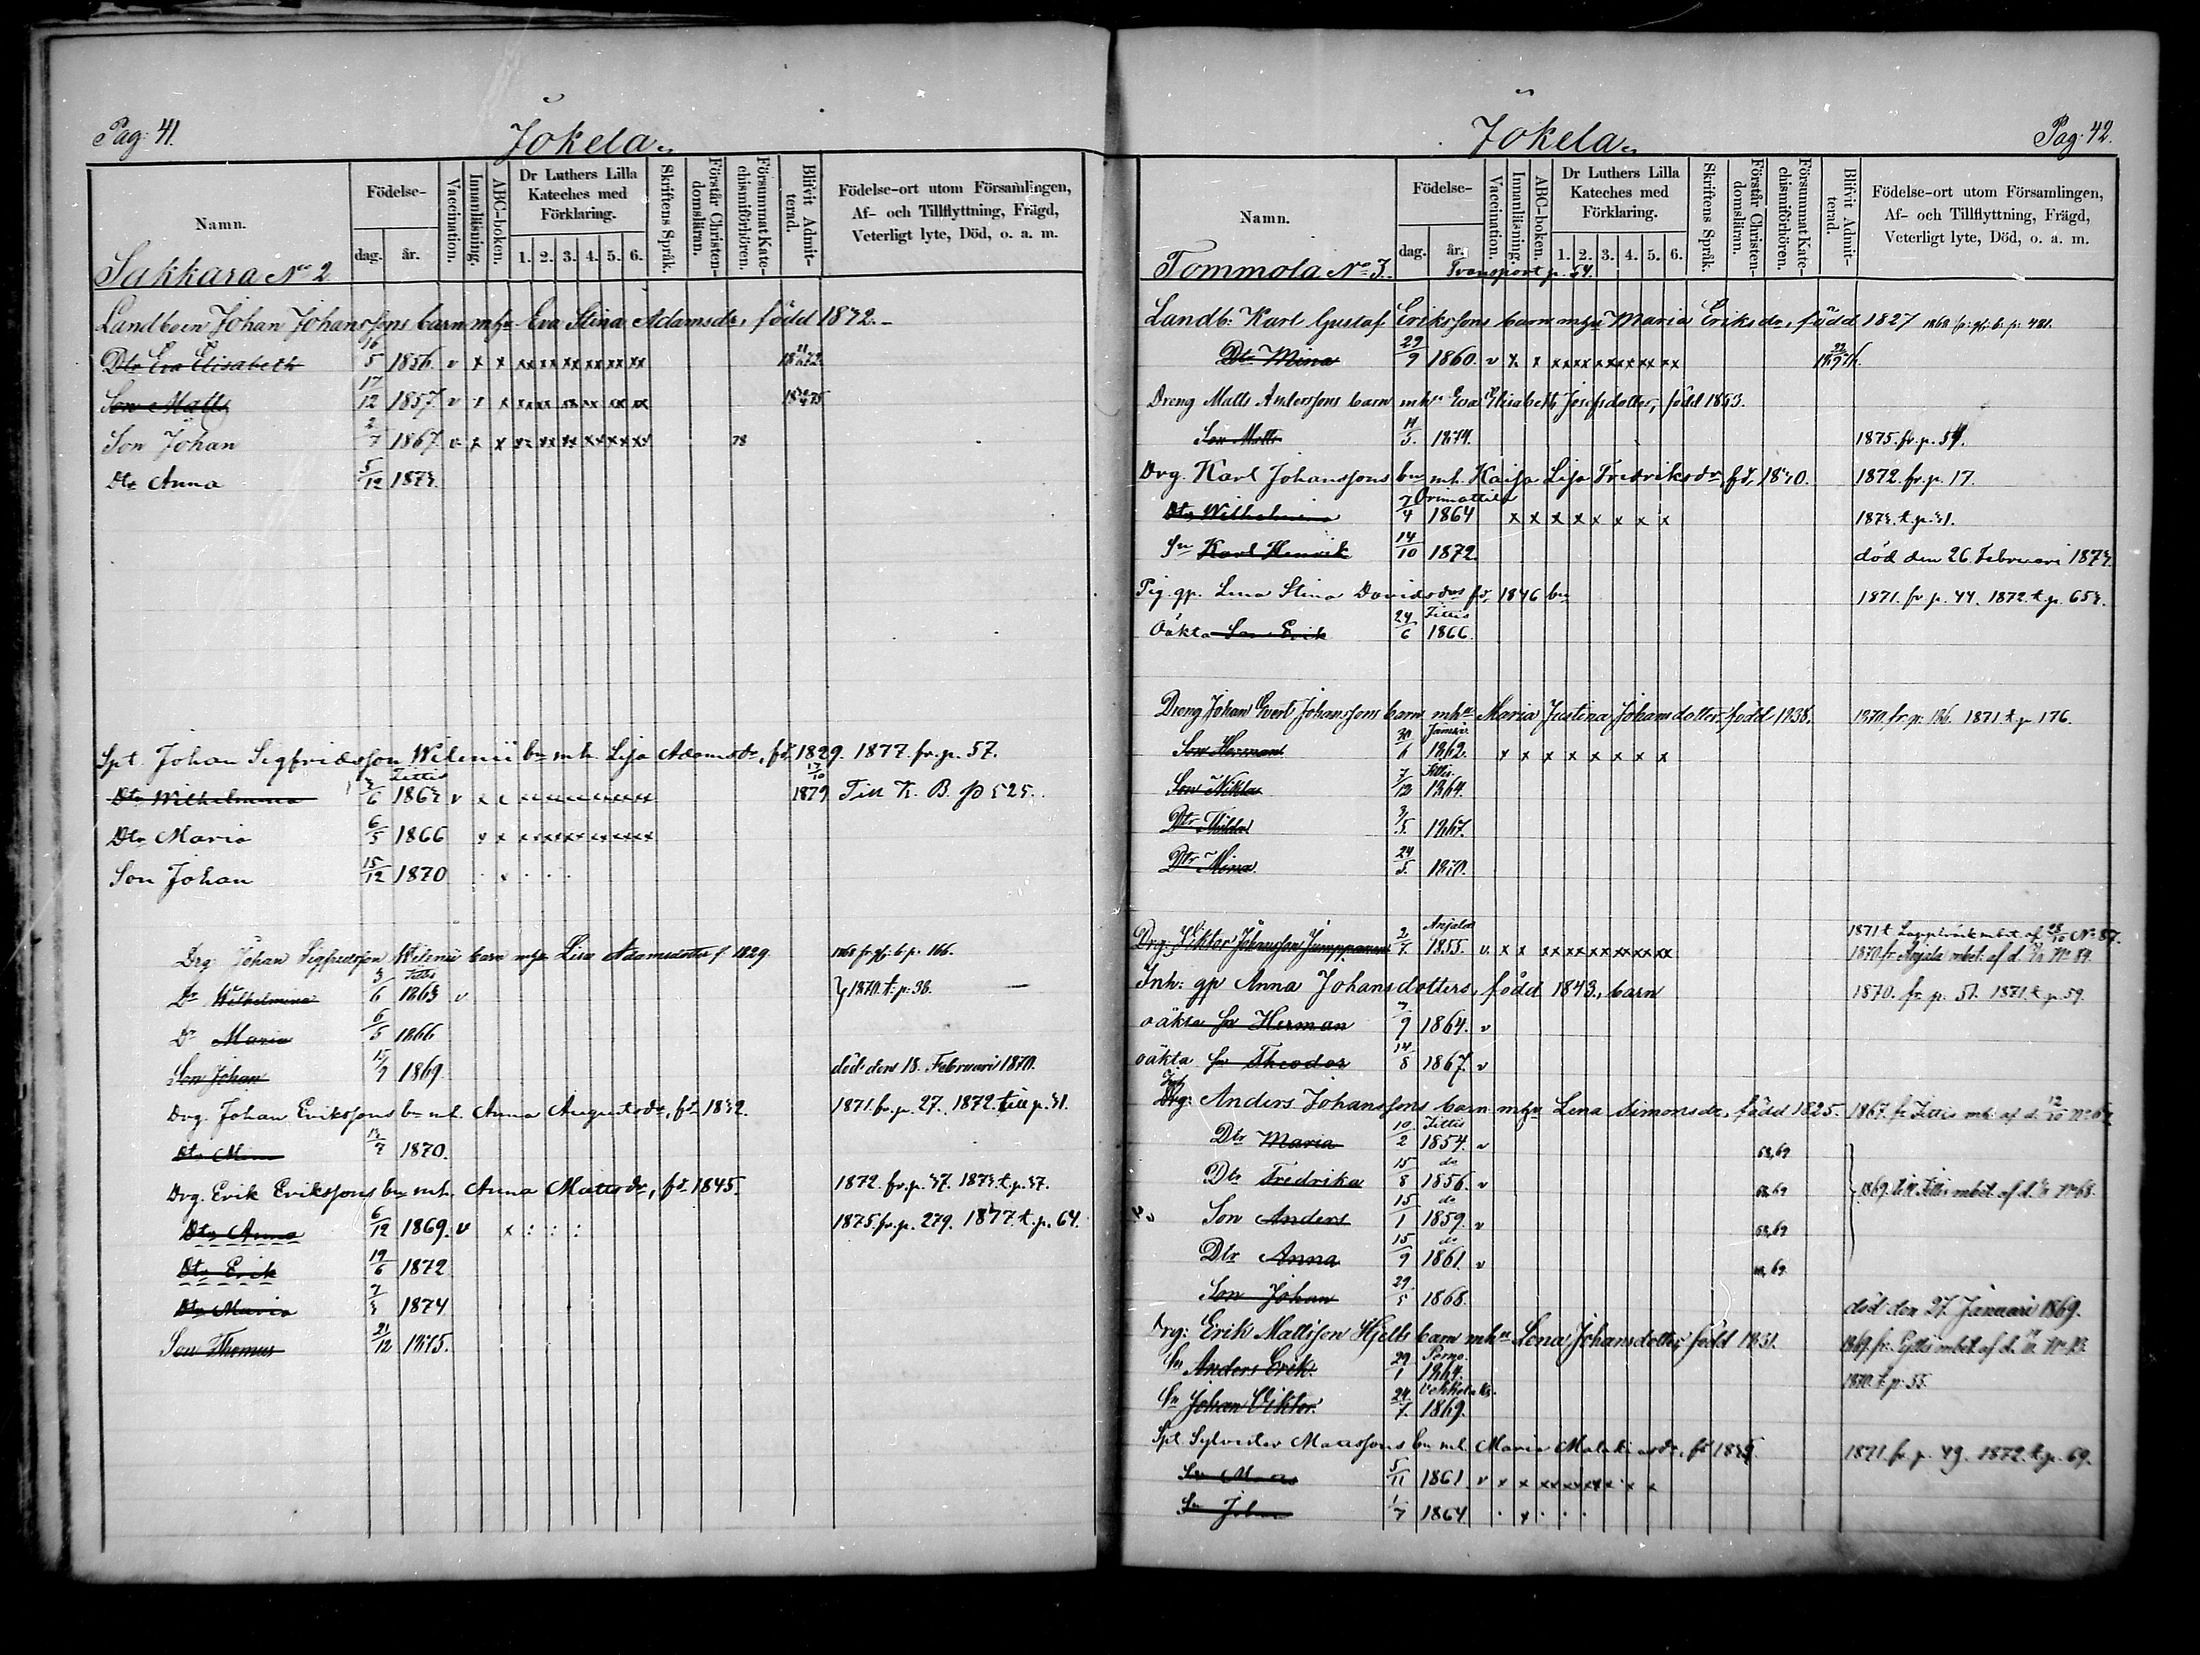 Pag: 41.
Jokela
Namn.
Födelse-
dag. år.
Vaccination.
Innanläsning.
ABC-boken.
Dr Luthers Lilla Kateches med Förklaring.
1. 2. 3. 4. 5. 6.
Skriftens Språk.
Förstår Christendomsläran.
Försummat Katechismiförhören.
Blifvit Admitterad.
Födelse-ort utom Församlingen,
Af- och Tillflyttning, Frägd,
Veterligt lyte, Död, o. a. m.
Sakkara No 2
Landboen Johan Johanssons barn mhu Eva Stina Adamsdr, född
Dtr Eva Elisabeth 16/5 1856. v x x xx xx xx xx xx xx
Son Matts 17/12 1857. v x x xx xx xx xx xx xx
Son Johan 2/7 1867. v x x xx xx xx xx xx xx 78
Dtr Anna 5/12 1873.
Spt. Johan Sigfridsson Wilenii bn mh. Lisa Adamsdr, fd. 1829. 1877. fr. p. 57.
Dtr Wilhelmina 3/6 1863 v 17/10 1879 Till K. B. p 525.
Dtr Maria 6/5 1866
Son Johan 15/12 1870
Drg: Johan Sigfredsson Wilenii barn mhu Lisa Adamsdotter f. 1829. 1868 fr. gl: b. p. 166.
Dr Wilhelmina 3/6 1863 v 1870. t. p. 38.
Dr Maria 6/5 1866
Son Johan 1869. död den 18. Februari 1870.
Drg. Johan Erikssons bn mh. Anna Augustsdr, fd. 1871. fr. p. 27. 1872. till p. 31.
1870.
Drg. Erik Erikssons bn mh. Anna Mattsdr, fd. 1845. 1872. fr. p. 37. 1873. t. p. 37.
Dtr Anna 6/12 1869. v x : : : 1875. fr. p. 279. 1877. t. p. 64.
Dtr Erik 19/6 1872
Dtr Maria 7/3 1874
Son Thomas 21/12 1875.
Pag: 42.
Jokela
Namn.
Födelse-
dag. år.
Vaccination.
Innanläsning.
ABC-boken.
Dr Luthers Lilla Kateches med Förklaring.
1. 2. 3. 4. 5. 6.
Skriftens Språk.
Förstår Christendomsläran.
Försummat Katechismiförhören.
Blifvit Admitterad.
Födelse-ort utom Församlingen,
Af- och Tillflyttning, Frägd,
Veterligt lyte, Död, o. a. m.
Tommola No 3. Transport p. 54.
Landb: Karl Gustaf Erikssons barn mhu Maria Eriksdr, född 1827 1868 fr: gl: b: p: 481.
Dtr Mina 29/9 1860. v x x xxxx xxxx xx xx
Dreng Matts Anderssons barn mhu Eva Elisabeth Josefsdotter, född
Son Matts 1874. 1875. fr. p. 54.
Drg. Karl Johanssons bn mh. Kaisa Lisa Fredriksdr, fd. 1840. 1872. fr. p. 17.
Dtr Wilhelmina 7/4 Orimattila 1864 x x x x x x x x 1873. t. p. 31.
Sn Karl Henrik 14/10 1872. död den 26. Februari 1873.
Pig. gp. Lena Stina Davidsdrs fd. 1846 bn 1871. fr. p. 44. 1872. t. p. 653.
Oäkta Son Erik 24/6 Jittis 1866.
Dreng Johan Evert Johanssons barn mhu Maria Justina Johansdotter, född 1838. 1870. fr. p. 136. 1871. t. p. 176.
Son Herman 1862. x x x x x x x x
Son Nikla 7/12 Jittis 1864.
Dtr Hilda 3/5. 1867.
Dtr Mina 24/5. 1870.
Drg. Viktor Johansson Jumppanen 2/7. Anjala 1855. v. x x xxxx xxxx xxxx
Inh: gp Anna Johansdotters, född 1843, barn 1870. fr. p. 51. 1871. t. p. 59.
oäkta Sn Herman 7/9 1864. v
oäkta Sn Theodor 14/8 1867. v
Anders Johanssons barn mhu Lena Simonsdr, född 1825. 1867. fr. Jittis mb. af d. 12/10
Dtr Maria 10/2 Jittis 1854. v 68,69
Dtr Fredrika 15/8 do 1856. v 68,69 1869. till Jittis mbet. af d.
Son Anders 15/1 do 1859. v 68,69
Dtr Anna 15/9 do 1861. v 68,69
Son Johan 29/5 1868. död den 27. Januari 1869.
Drg: Erik Mattsson Hjelts barn mhu Lena Johansdotter, född 1831.
Sn Anders Erik. 29/1 Perno. 1864. 1870. t. p. 55.
Sn Johan Viktor. 24/7. 1869.
Spt Sylvester Maassons bn mh. Maria 1871. fr. p. 49. 1872. t. p. 69.
5/11 1861. v x x
Sn Johan 1/7 1864